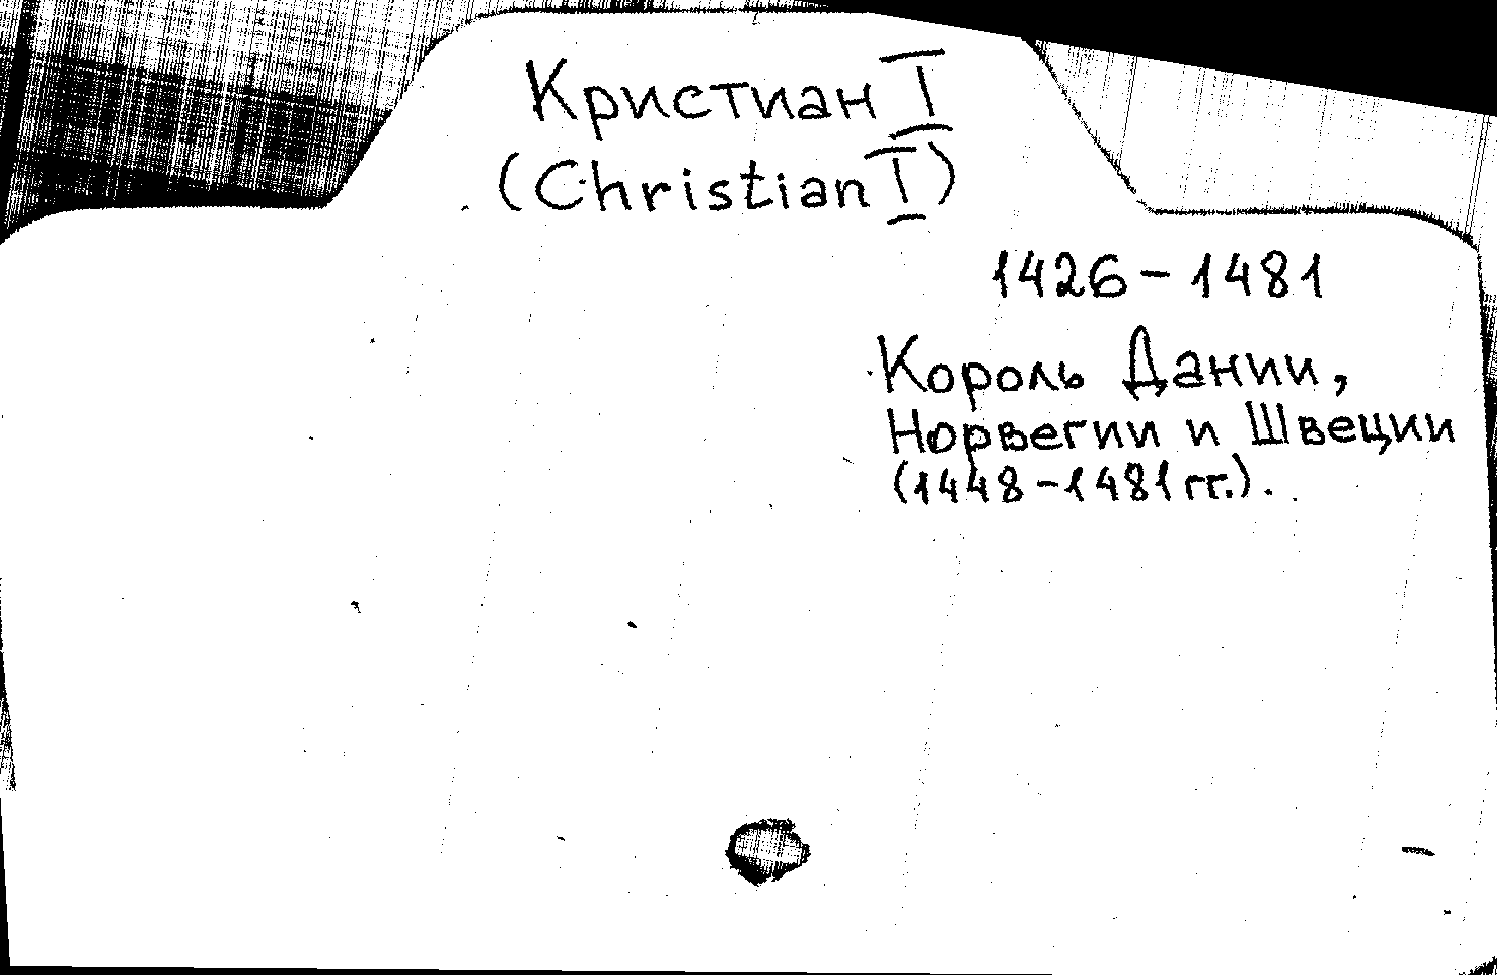 Кристиан I
(Christian I)
1426-1481
Король Дании,
Норвегии и Швеции
(1448-1481 гг.).